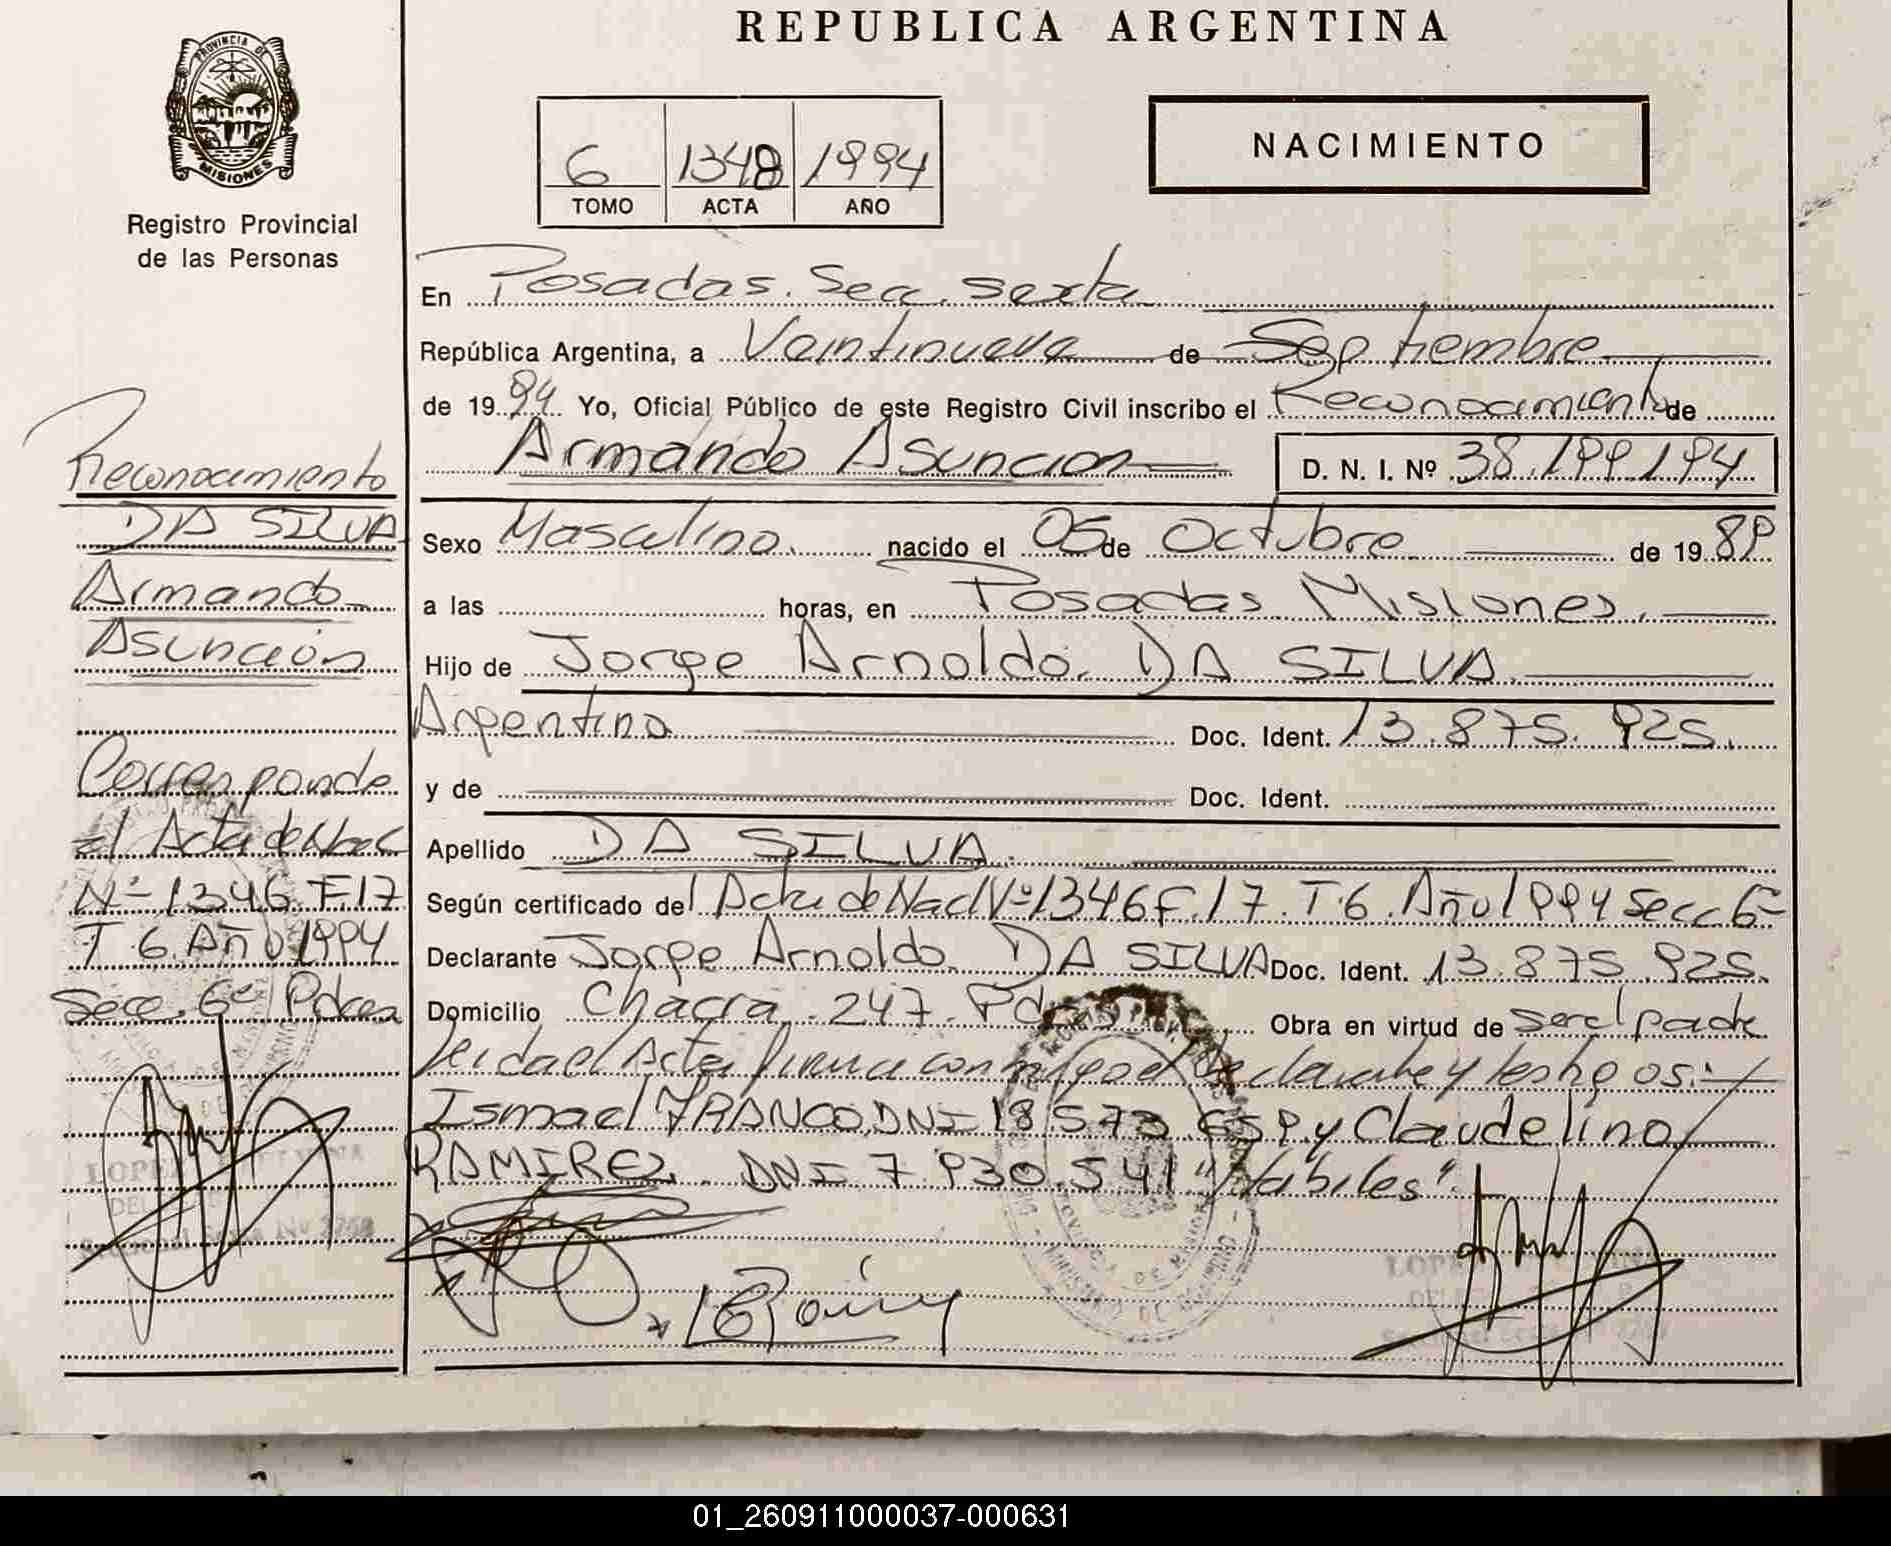 REPUBLICA ARGENTINA
PROVINCIA DE
MISIONES
Registro Provincial
de las Personas
NACIMIENTO
6 1348 1994
TOMO ACTA AÑO
En Posadas. Secc. Sexta
República Argentina, a Veintinueve de Septiembre
de 1994 Yo, Oficial Público de este Registro Civil inscribo el Reconocimiento de
Armando Asuncion D. N. I. Nº 38.199.194
Sexo Masculino. nacido el 05 de Octubre de 1989
a las horas, en Posadas Misiones.
Hijo de Jorge Arnoldo. DA SILVA.
Argentino Doc. Ident. 13.875.925.
y de Doc. Ident.
Apellido DA SILVA.
Según certificado del Acta de Nac Nº 1346 F.17. T.6. Año 1994 Secc 6ª
Declarante Jorge Arnoldo. DA SILVA Doc. Ident. 13.875.925.
Domicilio Chacra. 247. Pdas Obra en virtud de ser el padre
Leida el Acta firma conmigo el Declarante y testigos:
Ismael FRANCO. DNI 18 573. 659. y Claudelino
RAMIREZ. DNI 7 930.541 "Habiles".
Reconocimiento
DA SILVA
Armando
Asunción
Corresponde
al Acta de Nac
Nº 1346 F.17
T. 6. Año 1994
Secc. 6ª Pdas
LOPEZ
01_260911000037-000631